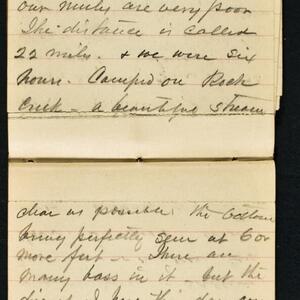 our mules are very poor
The distance is called
22 miles. & we were six
hours. Camped on Rock
Creek - a beautiful stream
clear as possible the bottom
being perfectly seen at 6 or
more feet - There are
many bass in it - but the